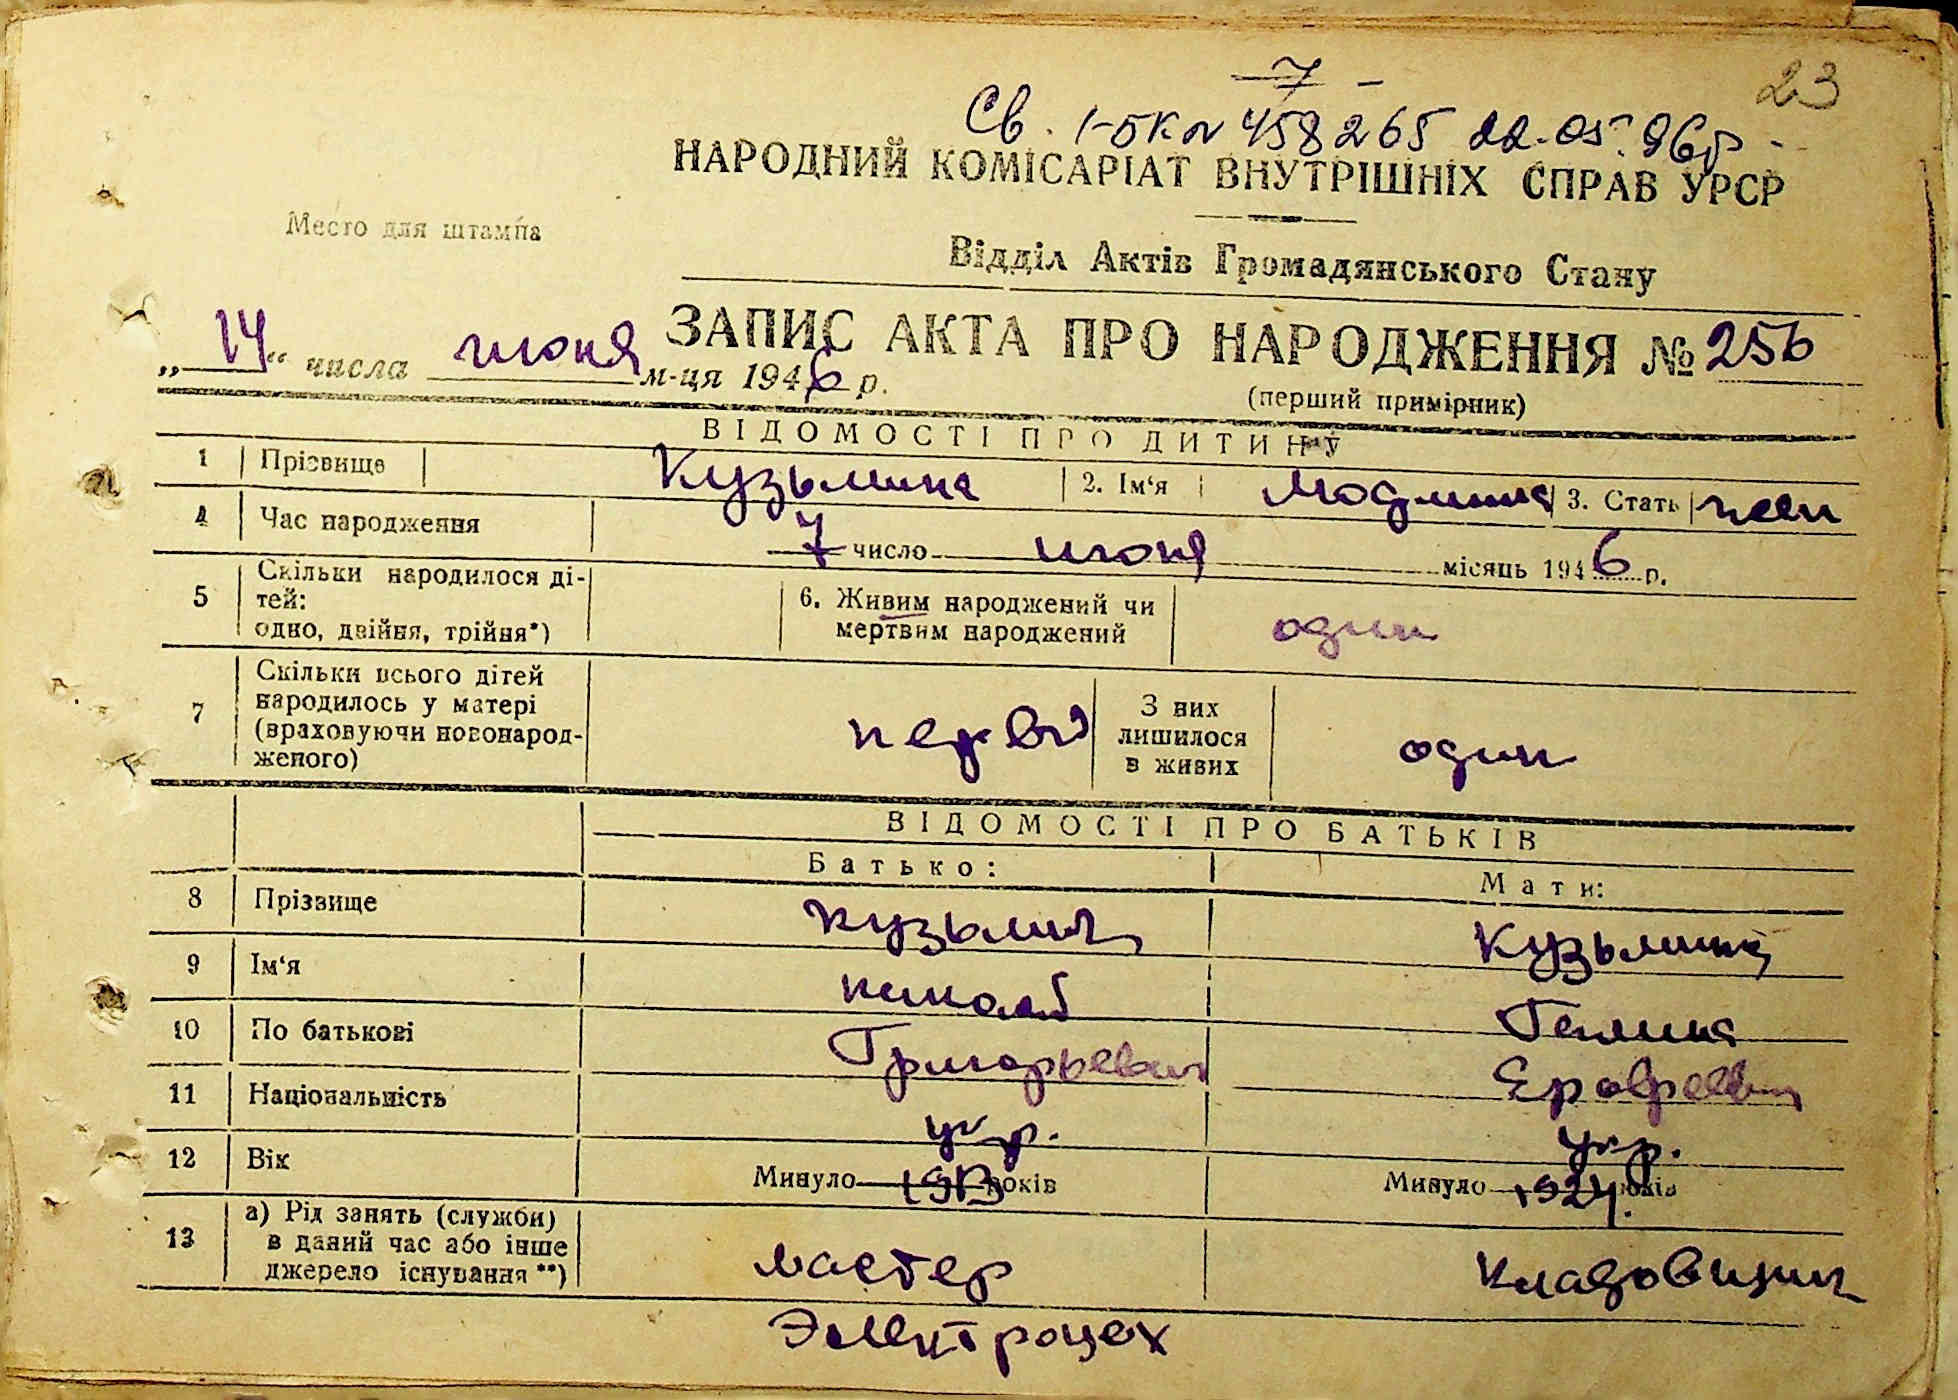 7
23
Св. 1-БК № 458265 22.05.96г.
НАРОДНИЙ КОМІСАРІАТ ВНУТРІШНІХ СПРАВ УРСР
Место для штампа
Відділ Актів Громадянського Стану
ЗАПИС АКТА ПРО НАРОДЖЕННЯ № 256
„14“ числа июня м-ця 1946 р.
(перший примірник)
ВІДОМОСТІ ПРО ДИТИНУ
1 Прізвище Кузьмина 2. Ім‘я Людмила 3. Стать жен
4 Час народження 7 число июня місяць 1946 р.
5 Скільки народилося ді-
тей:
одно, двійня, трійня*)
6. Живим народжений чи
мертвим народжений
один
7 Скільки всього дітей
народилось у матері
(враховуючи новонарод-
женого)
первый
З них
лишилося
в живих
один
ВІДОМОСТІ ПРО БАТЬКІВ
Батько: Мати:
8 Прізвище Кузьмин Кузьмина
9 Ім‘я Николай Галина
10 По батькові Григорьевич Ерофеевн
11 Національність укр. укр.
12 Вік Минуло 1913 років Минуло 1924 років
13 а) Рід занять (служби)
в даний час або інше
джерело існування **)
мастер
Электроцех
кладовщик